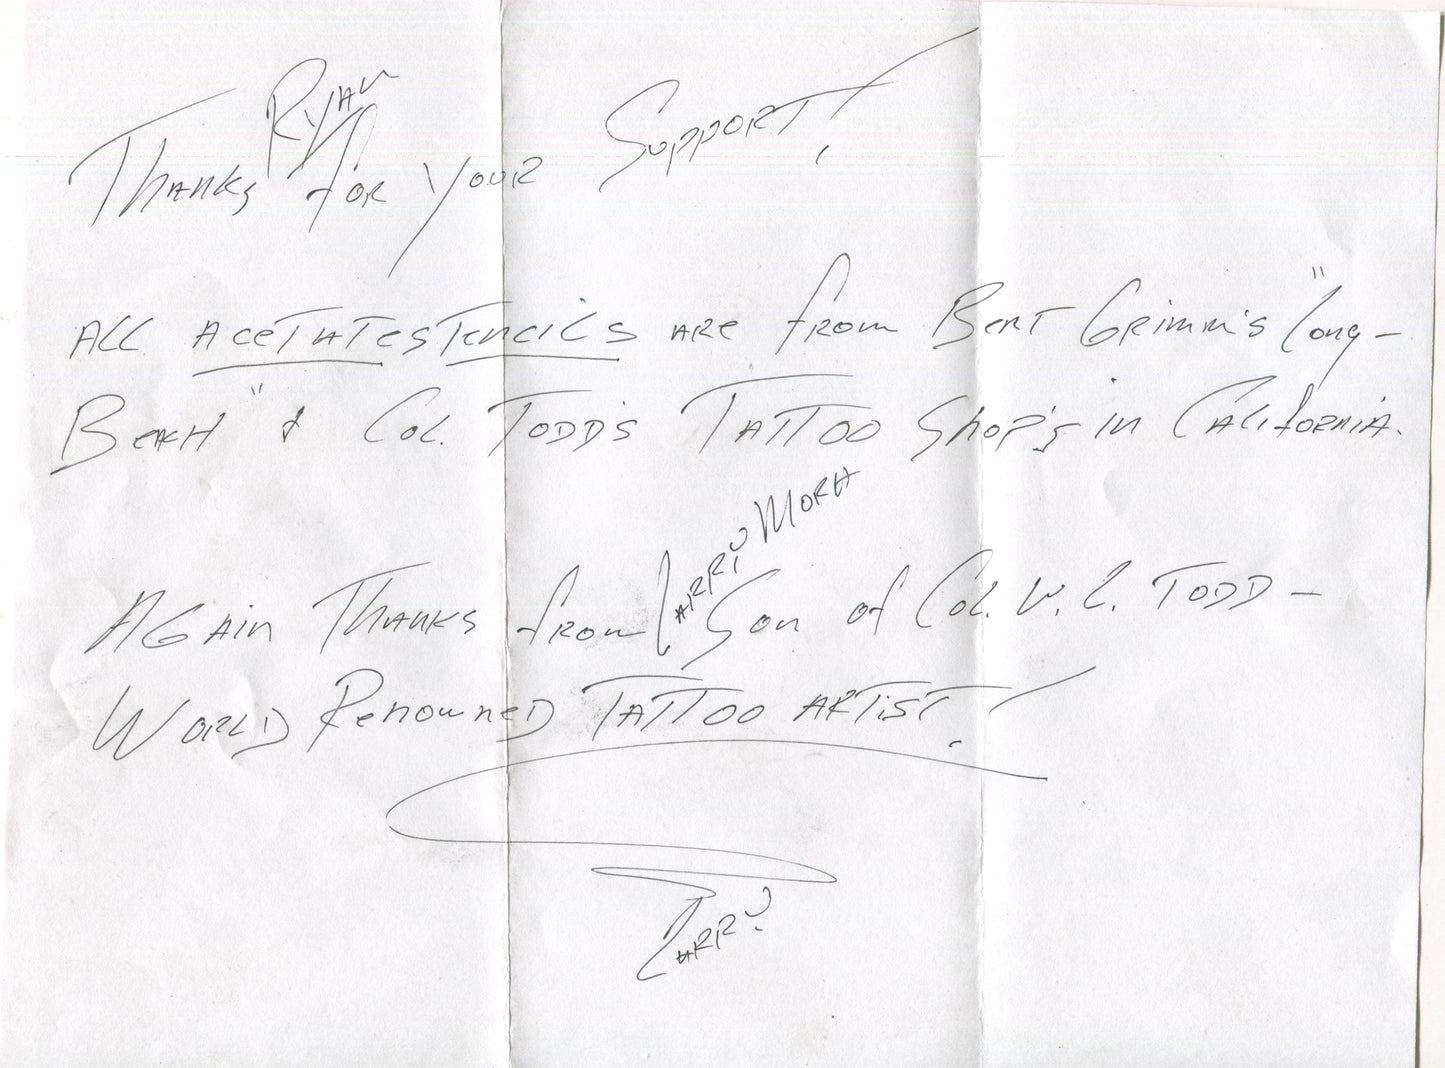 Ryan
Thanks for your Support!
All acetate stencils are from Bert Grimm's "Long-
Beach" & Col. Todd's Tattoo Shop's in California.
Again Thanks from Larry Mora Son of Col. W. L. Todd -
World Renowned Tattoo artist!
Larry